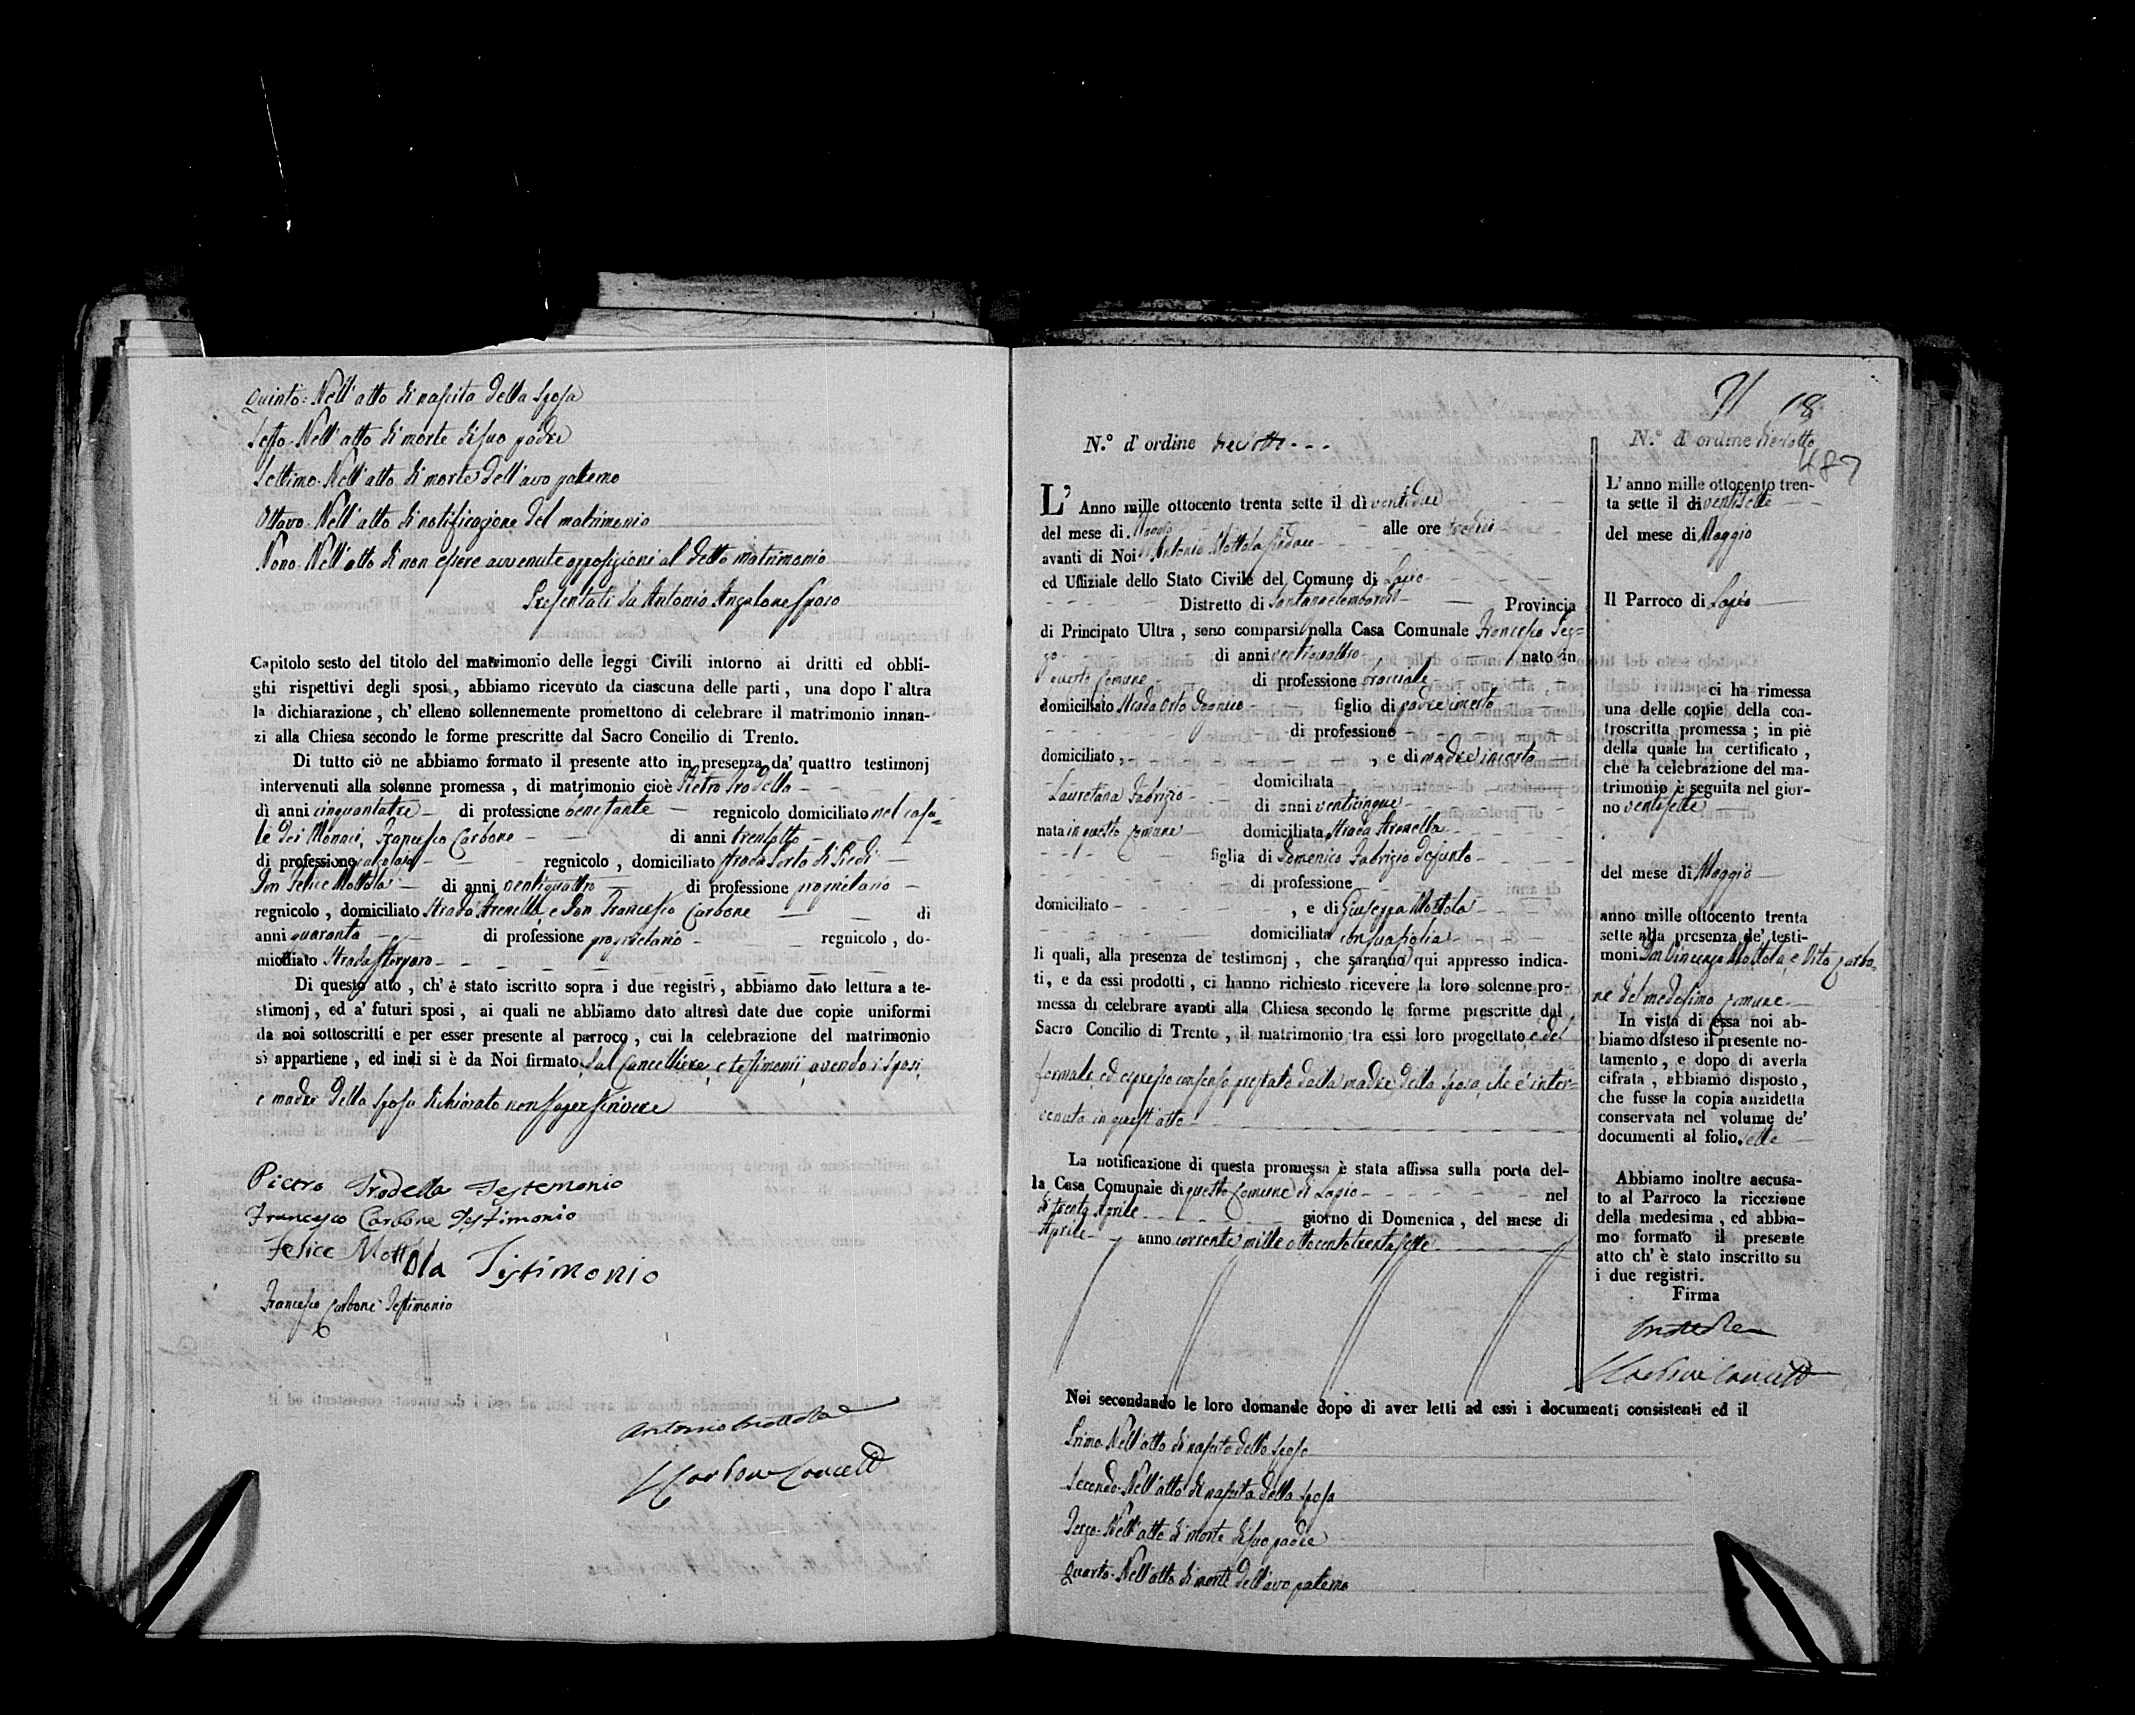 Quinto: Nell' atto di nascita della Sposa
Sesto. Nell' atto di morte di suo padre
Settimo. Nell' atto di morte dell' avo paterno
Ottavo. Nell' atto di notificazione del matrimonio
Nono. Nell' atto di non essere avvenute opposizioni al detto matrimonio
Presentati da Antonio Angalone sposo
Capitolo sesto del titolo del matrimonio delle leggi Civili intorno ai dritti ed obbli-
ghi rispettivi degli sposi, abbiamo ricevuto da ciascuna delle parti, una dopo l' altra
la dichiarazione, ch' elleno sollennemente promettono di celebrare il matrimonio innan-
zi alla Chiesa secondo le forme prescritte dal Sacro Concilio di Trento.
Di tutto ciò ne abbiamo formato il presente atto in presenza da' quattro testimonj
intervenuti alla solenne promessa, di matrimonio cioè Pietro Prodella
di anni cinquantatre di professione benestante regnicolo domiciliato nel casa=
le dei Monaci, Francesco Carbone di anni trentotto
di professione regnicolo, domiciliato strada Porta di Piedi
Don Felice Mottola di anni ventiquattro di professione proprietario
regnicolo, domiciliato Strada Arenella e Don Francesco Carbone di
anni quaranta di professione proprietario regnicolo, do-
miciliato Strada
Di questo atto, ch' è stato iscritto sopra i due registri, abbiamo dato lettura a te-
stimonj, ed a' futuri sposi, ai quali ne abbiamo dato altresì date due copie uniformi
da noi sottoscritti e per esser presente al parroco, cui la celebrazione del matrimonio
si appartiene, ed indi si è da Noi firmato, dal Cancelliere, e testimonii, avendo i sposi,
e madre della sposa dichiarato non saper scrivere
Pietro Prodella Testemonio
Francesco Carbone Testimonio
Felice Mottola Testimonio
Francesco Carbone Testimonio
Antonio Mottola
Carbone Cancell
18
N.° d' ordine dieciotto
L' Anno mille ottocento trenta sette il dì ventidue
del mese di Maggio alle ore tredici
avanti di Noi Antonio Mottola Sindaco
ed Uffiziale dello Stato Civile del Comune di Lapio
Distretto di Santangelolombardi Provincia
di Principato Ultra, sono comparsi nella Casa Comunale Francesco
di anni ventiquattro nato in
questo Comune di professione bracciale
domiciliato strada Orto figlio di padre incerto
di professione
domiciliato, , e di madre incerta
domiciliata
Lauretana Fabrizio di anni venticinque
nata in questo Comune domiciliata strada Arenella
figlia di Domenico Fabrizio defunto
di professione
domiciliato , e di Giuseppa Mottola
domiciliata con sua figlia
li quali, alla presenza de' testimonj, che saranno qui appresso indica-
ti, e da essi prodotti, ci hanno richiesto ricevere la loro solenne pro-
messa di celebrare avanti alla Chiesa secondo le forme prescritte dal
Sacro Concilio di Trento, il matrimonio tra essi loro progettato, e del
formale ed espresso consenso prestato dalla madre della sposa, che è inter=
venuta in quest' atto
La notificazione di questa promessa è stata affissa sulla porta del-
la Casa Comunale di questo Comune di Lapio nel
dì trenta Aprile giorno di Domenica, del mese di
Aprile anno corrente mille ottocentotrentasette
Noi secondando le loro domande dopo di aver letti ad essi i documenti consistenti ed il
Primo. Nell' atto di nascita dello sposo
Secondo. Nell' atto di nascita della sposa
Terzo. Nell' atto di morte di suo padre
Quarto. Nell' atto di morte dell' avo paterno
N.° d' ordine dieciotto
487
L' anno mille ottocento tren-
ta sette il dì ventisette
del mese di Maggio
Il Parroco di Lapio
ci ha rimessa
una delle copie della con-
troscritta promessa; in piè
della quale ha certificato,
che la celebrazione del ma-
trimonio è seguita nel gior-
no ventisette
del mese di Maggio
anno mille ottocento trenta
sette alla presenza de' testi-
moni Don Vincenzo Mottola, e Vito Carbo=
ne del medesimo Comune
In vista di essa noi ab-
biamo disteso il presente no-
tamento, e dopo di averla
cifrata, abbiamo disposto,
che fusse la copia anzidetta
conservata nel volume de'
documenti al folio
Abbiamo inoltre accusa-
to al Parroco la ricezione
della medesima, ed abbia-
mo formato il presente
atto ch' è stato inscritto su
i due registri.
Firma
Mottola
Carbone Cancell